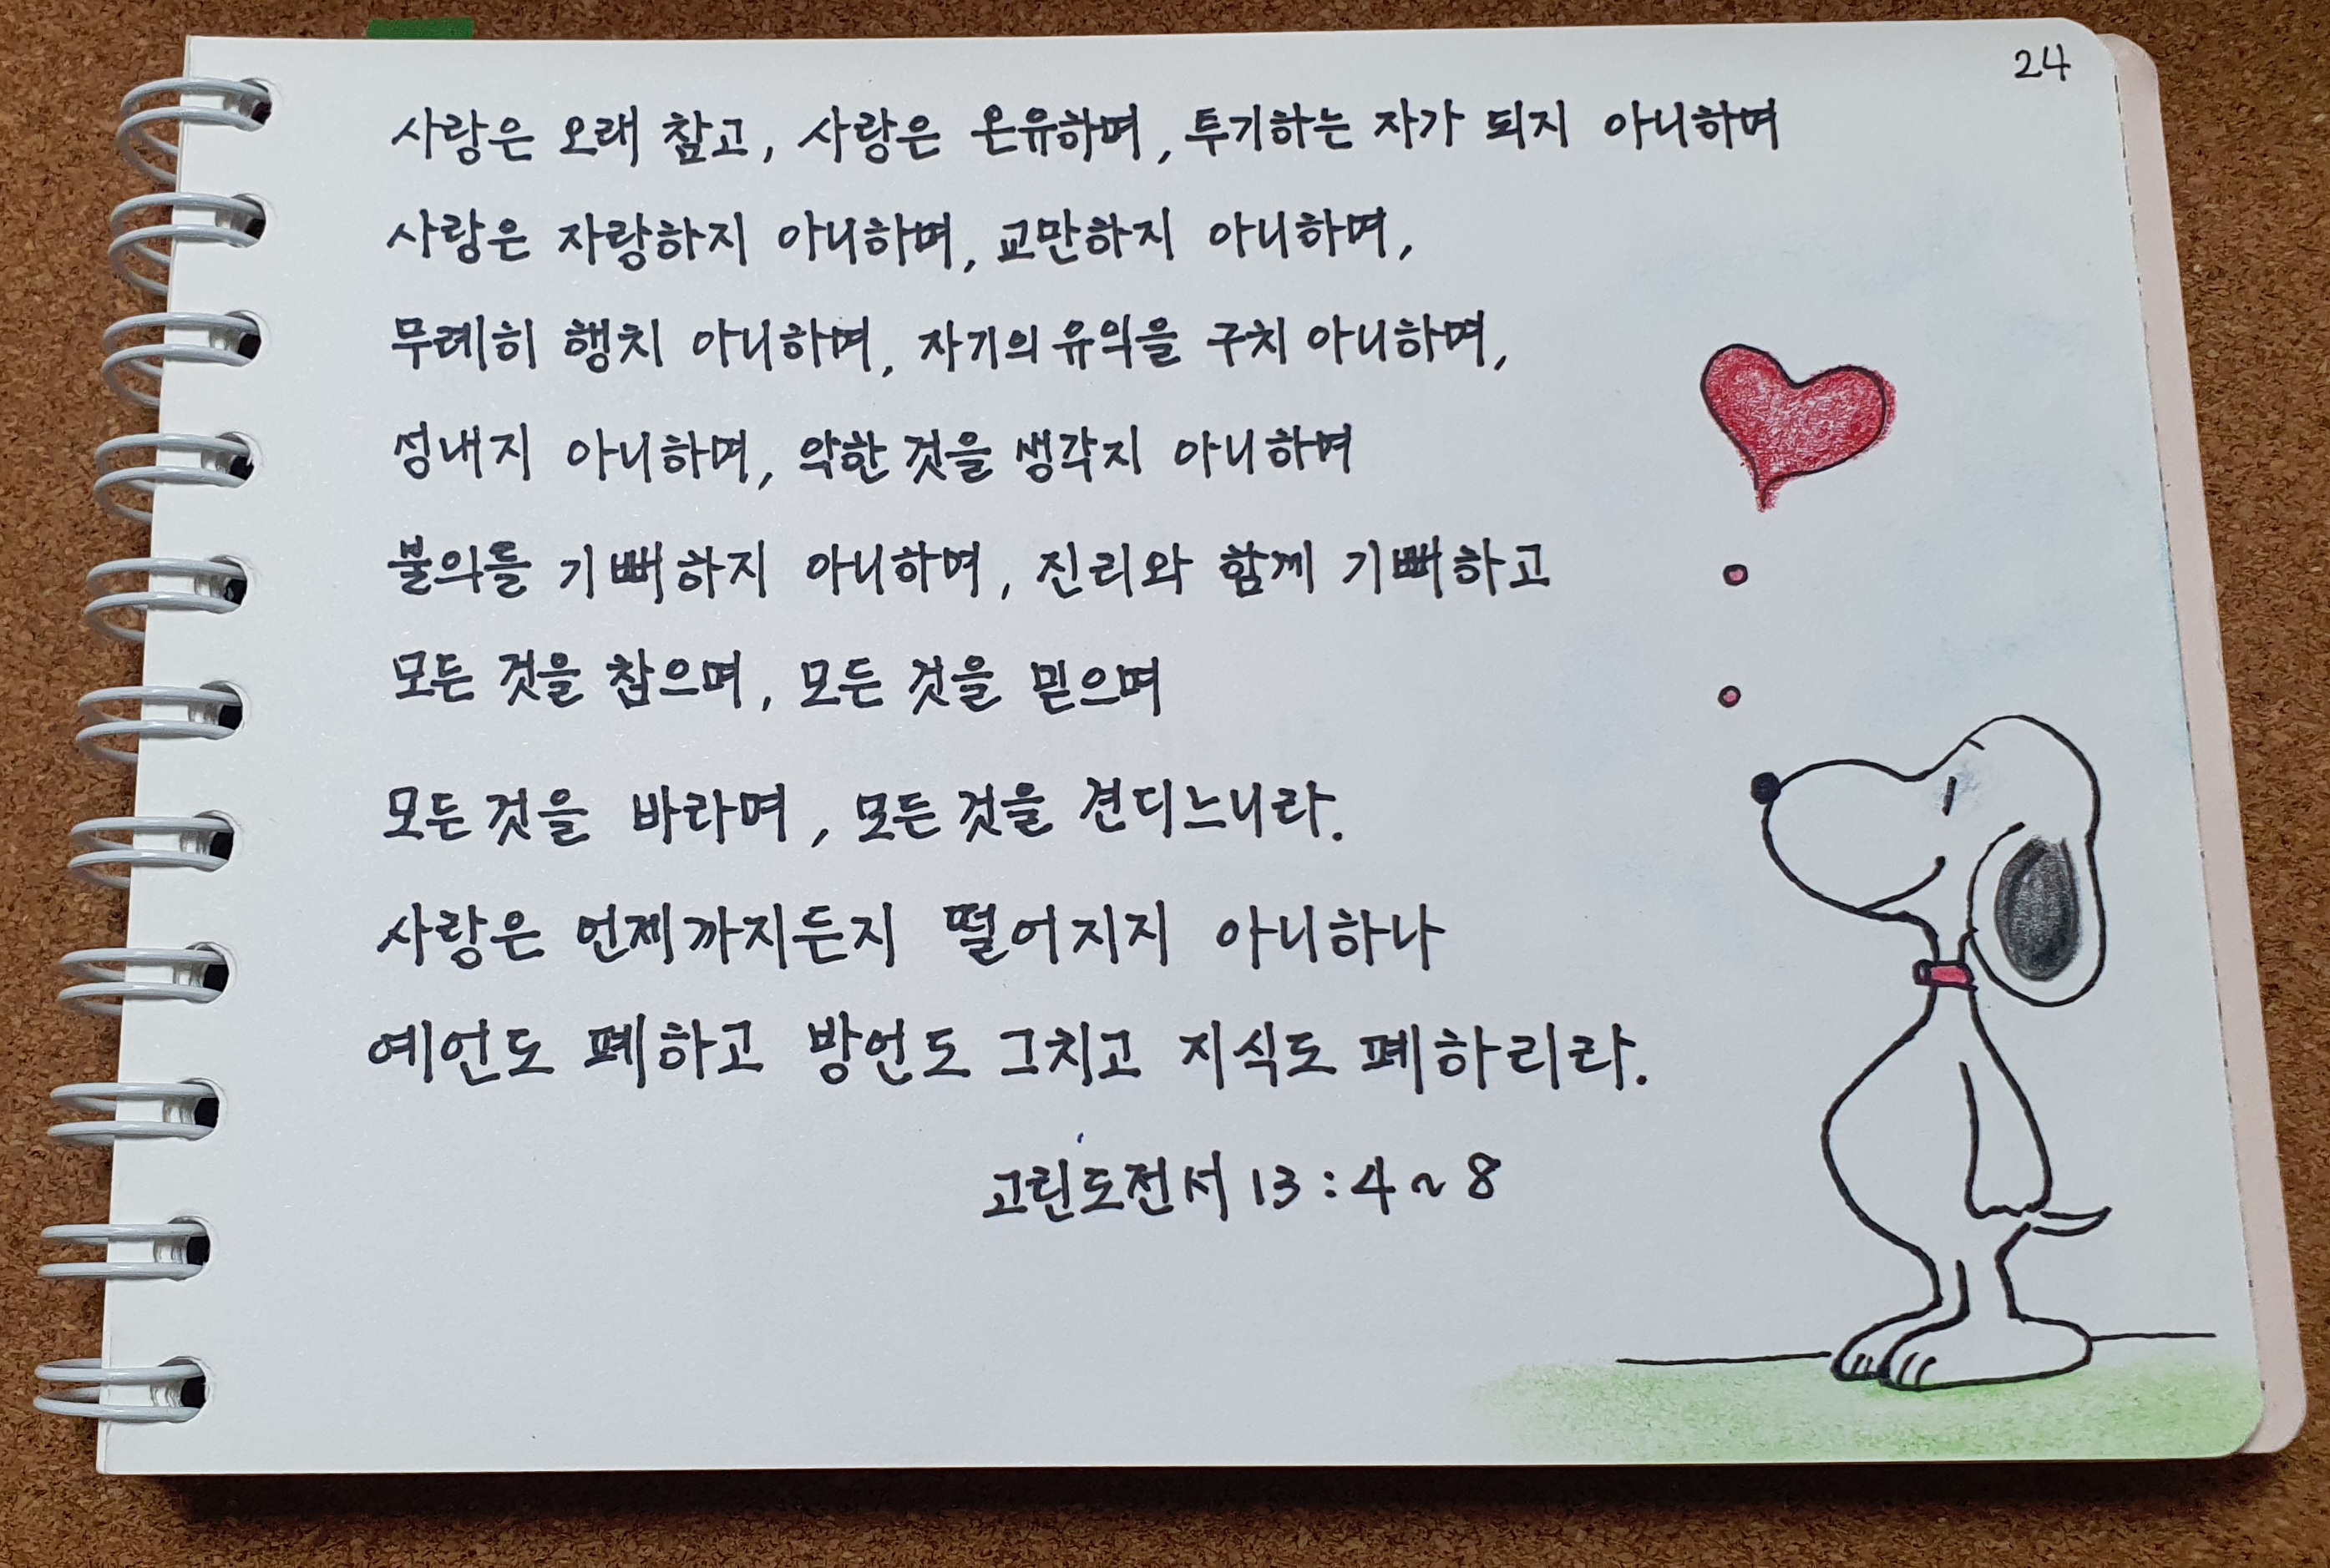 24
사랑은 오래 참고, 사랑은 온유하며, 투기하는 자가 되지 아니하며
사랑은 자랑하지 아니하며, 교만하지 아니하며,
무례히 행치 아니하며, 자기의 유익을 구치 아니하며,
성내지 아니하며, 악한 것을 생각지 아니하며
불의를 기뻐하지 아니하며, 진리와 함께 기뻐하고
모든 것을 참으며, 모든 것을 믿으며
모든 것을 바라며, 모든 것을 견디느니라.
사랑은 언제까지든지 떨어지지 아니하나
예언도 폐하고 방언도 그치고 지식도 폐하리라.
고린도전서 13:4~8